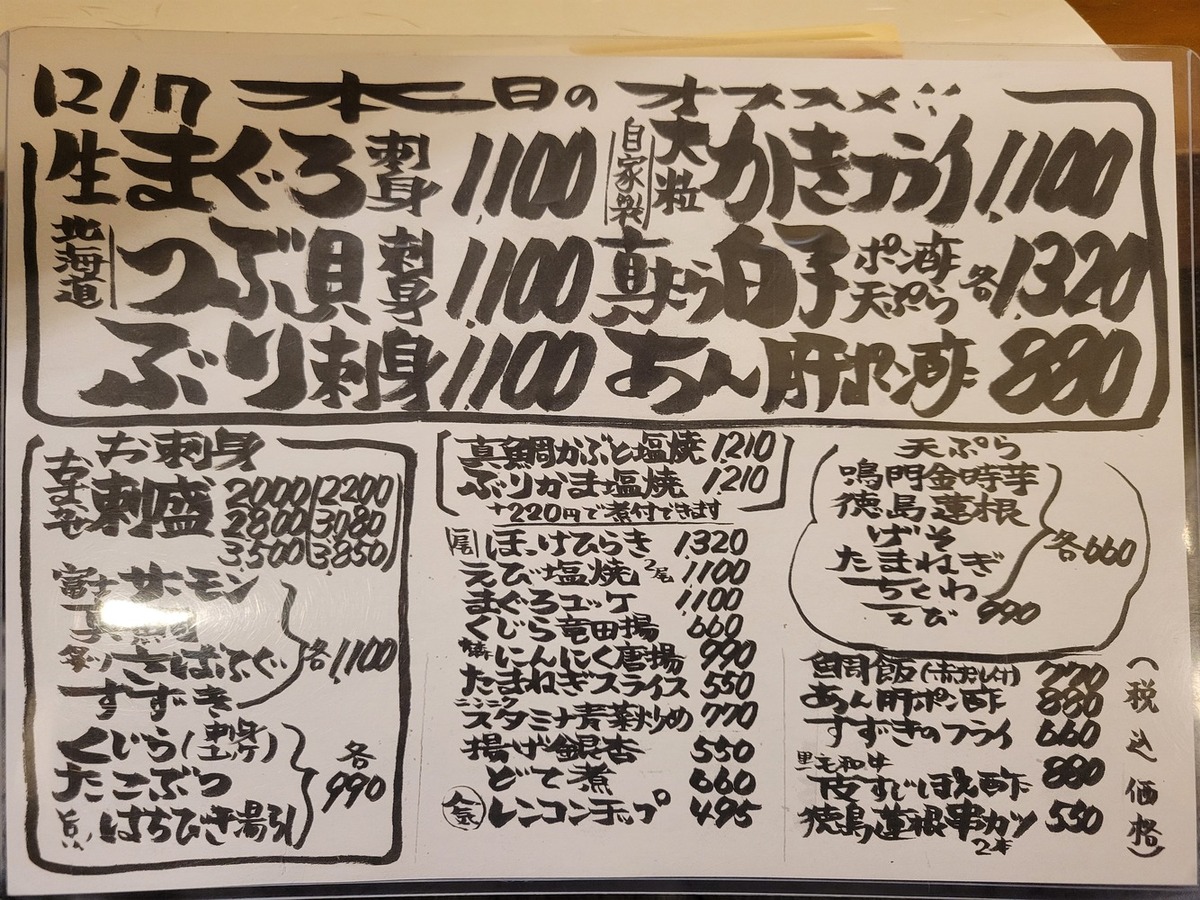 12/7 本日のオススメ!!
生まぐろ刺身 1,100
北海道 つぶ貝刺身 1,100
ぶり刺身 1,100
自家製 大粒 かきフライ 1,100
真たら白子 ポン酢 天ぷら 各1,320
あん肝ポン酢 880
お刺身
おまかせ 刺盛 2000 2200
2800 3,080
3,500 3,850
富士サーモン
さばふぐ
すずき
各1,100
くじら(刺身 ユッケ)
たこぶつ
旨い はちびき湯引
各990
真鯛かぶと塩焼 1210
ぶりかま塩焼 1210
+220円で煮付できます
尾 ほっけひらき 1320
えび塩焼 2尾 1100
まぐろユッケ 1100
くじら竜田揚 660
にんにく唐揚 990
たまねぎスライス 550
ニンニク スタミナ青菜炒め 770
揚げ銀杏 550
どて煮 660
レンコンチップ 495
天ぷら
鳴門金時芋
徳島蓮根
げそ
たまねぎ
ちくわ
各660
えび 990
鯛飯(赤だし付) 770
あん肝ポン酢 880
すずきのフライ 660
黒毛和牛 皮すじぽん酢 880
徳島蓮根串カツ 2本 550
(税込価格)